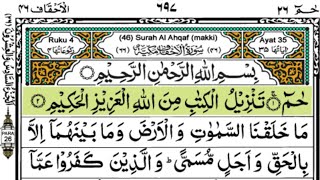 الاحقاف ٤٦ ٦٩٧ حٰمٓ ٢٦
Ruku 4 (46) Surah Al Ahqaf (makki) Ayat 35
بِسْمِ اللهِ الرَّحْمٰنِ الرَّحِيْمِ
حٰمٓ ۚ تَنْزِيْلُ الْكِتٰبِ مِنَ اللهِ الْعَزِيْزِ الْحَكِيْمِ
مَا خَلَقْنَا السَّمٰوٰتِ وَالْاَرْضَ وَمَا بَيْنَهُمَاۤ اِلَّا
بِالْحَقِّ وَاَجَلٍ مُّسَمًّى ؕ وَالَّذِيْنَ كَفَرُوْا عَمَّاۤ
PARA 26